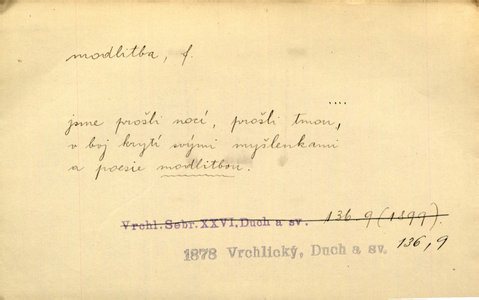 modlitba, f.
....
jsme prošli nocí, prošli tmou,
v boj krytí svými myšlenkami
a poesie modlitbou.
Vrchl. Sebr. XXVI, Duch a sv. 136.9 (1899).
1878 Vrchlický, Duch a sv. 136,9